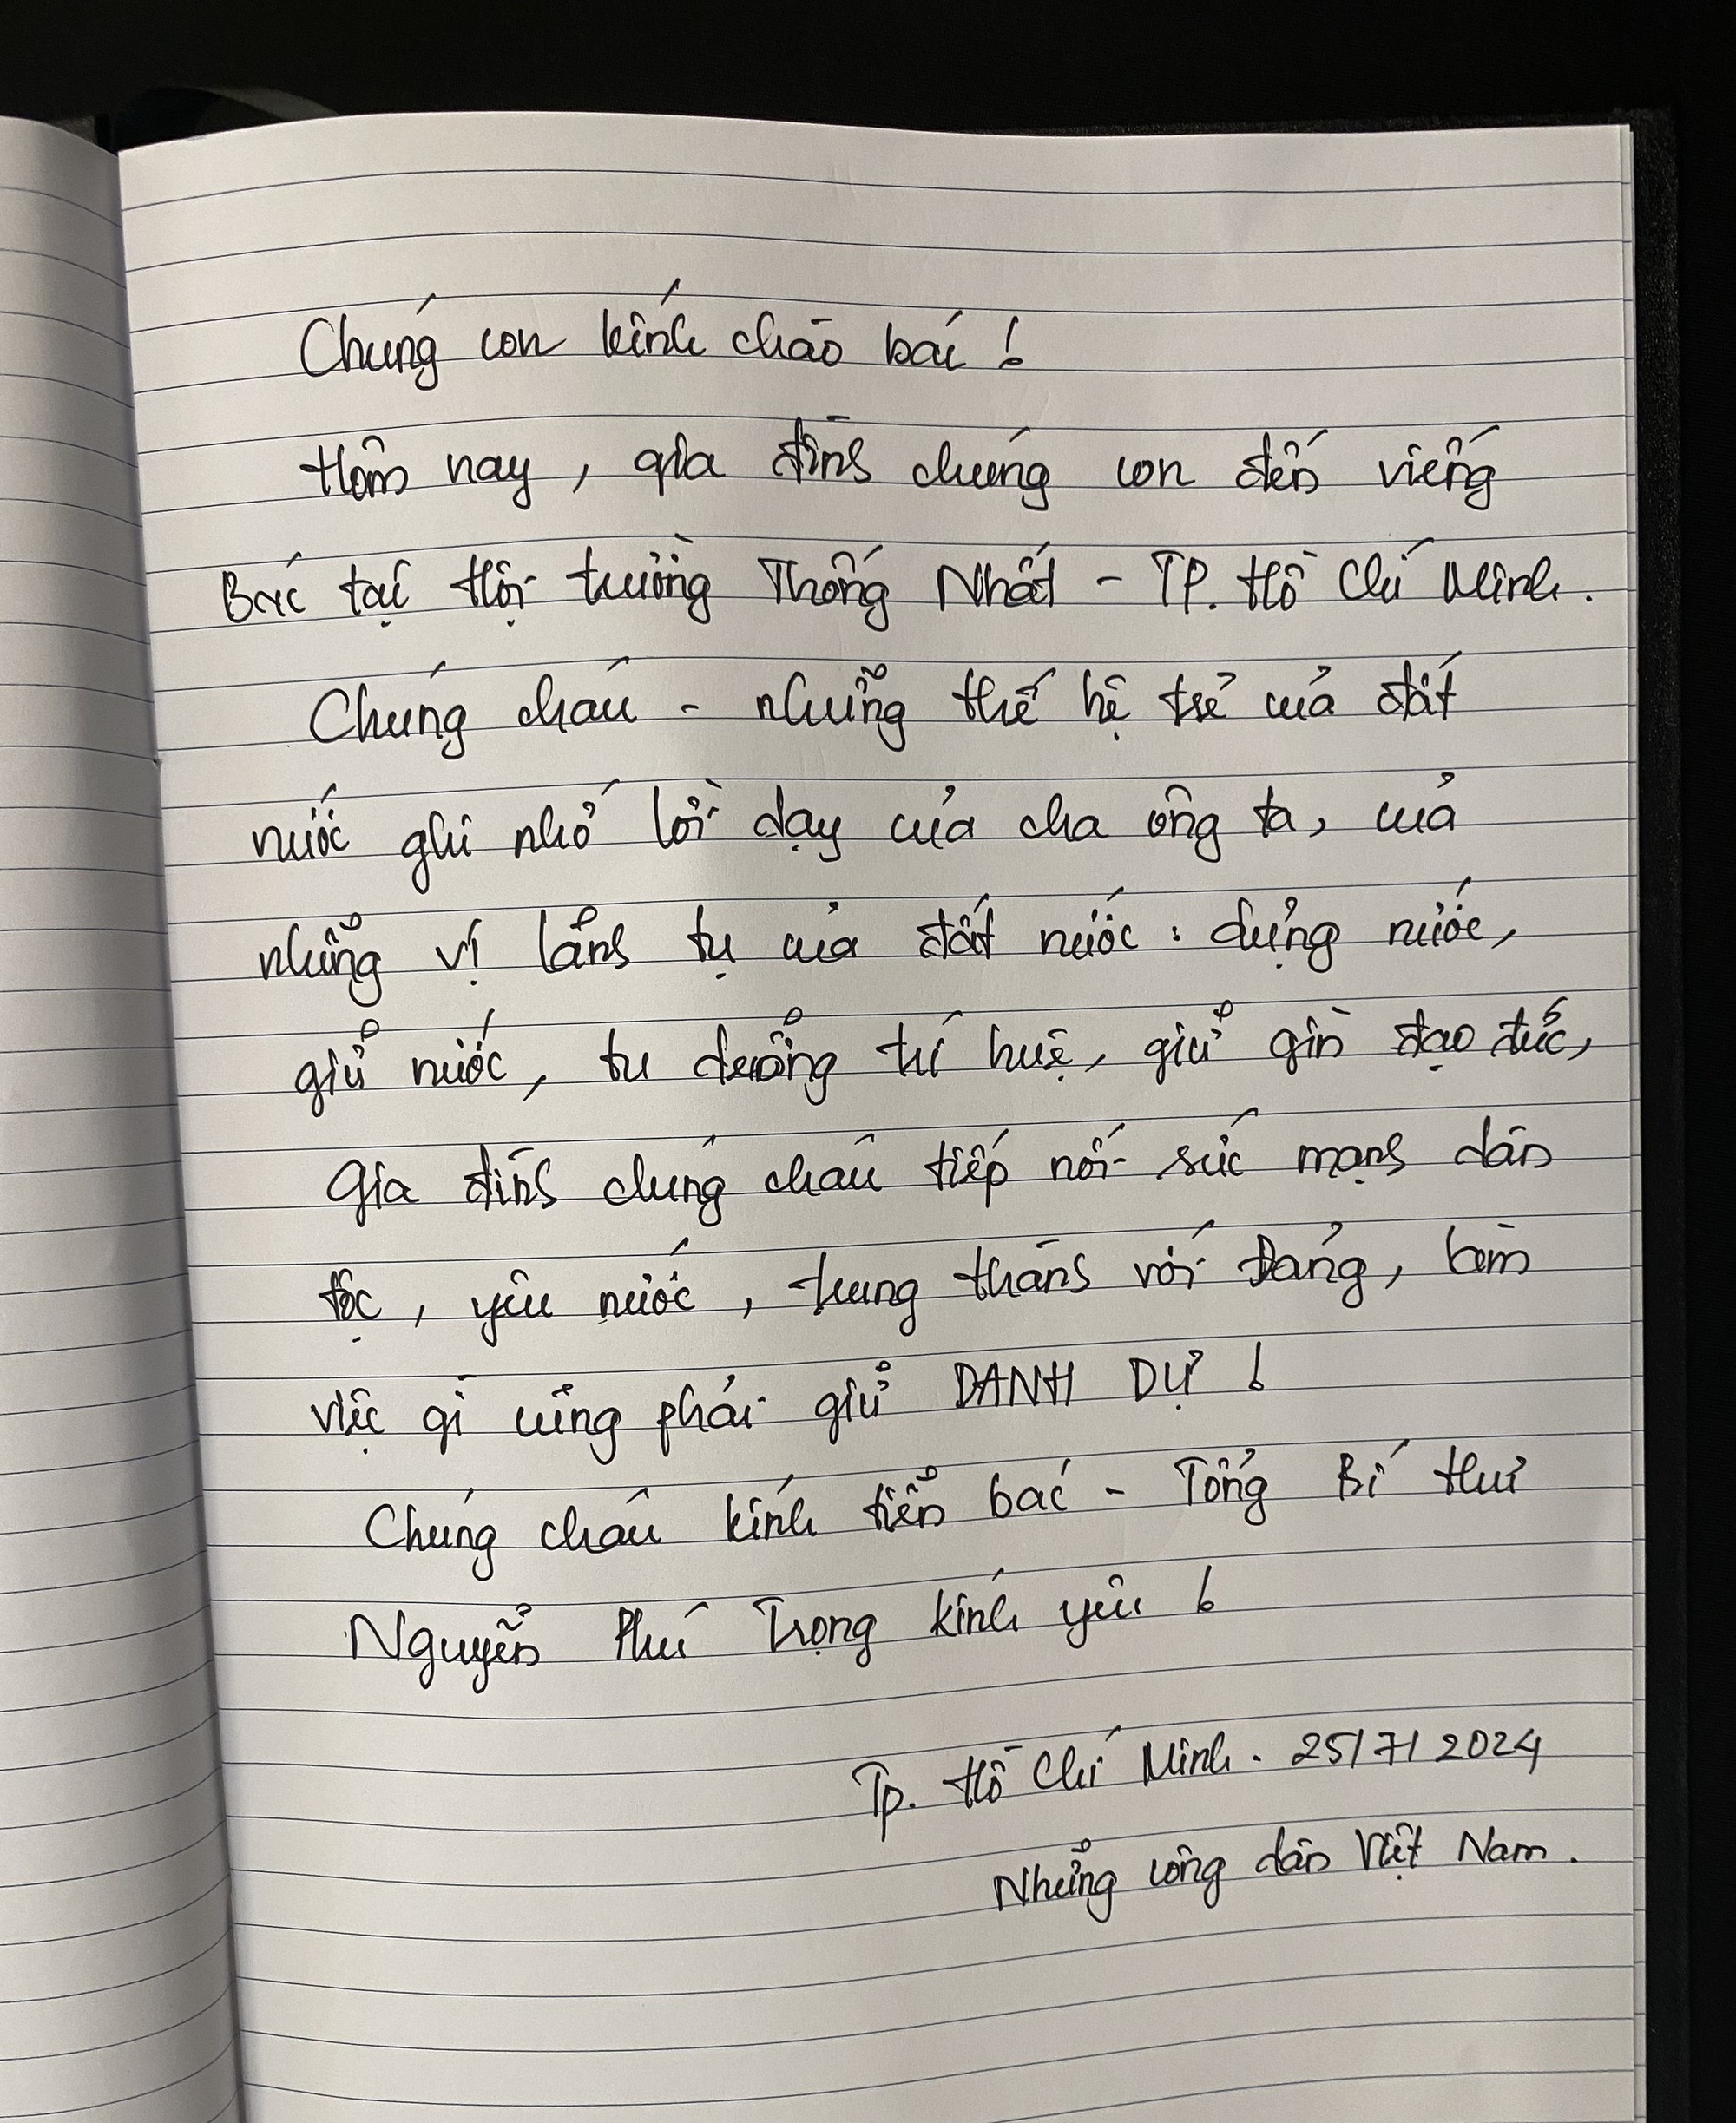 Chúng con kính chào bác !
Hôm nay, gia đình chúng con đến viếng
Bác tại Hội trường Thống Nhất - TP. Hồ Chí Minh.
Chúng cháu - những thế hệ trẻ của đất
nước ghi nhớ lời dạy của cha ông ta, của
những vị lãnh tụ của đất nước : dựng nước,
giữ nước, tu dưỡng trí huệ, giữ gìn đạo đức,
Gia đình chúng cháu tiếp nối sức mạnh dân
tộc, yêu nước, trung thành với Đảng, làm
việc gì cũng phải giữ DANH DỰ !
Chúng cháu kính tiễn bác - Tổng Bí thư
Nguyễn Phú Trọng kính yêu !
Tp. Hồ Chí Minh. 25/7/2024
Những công dân Việt Nam.